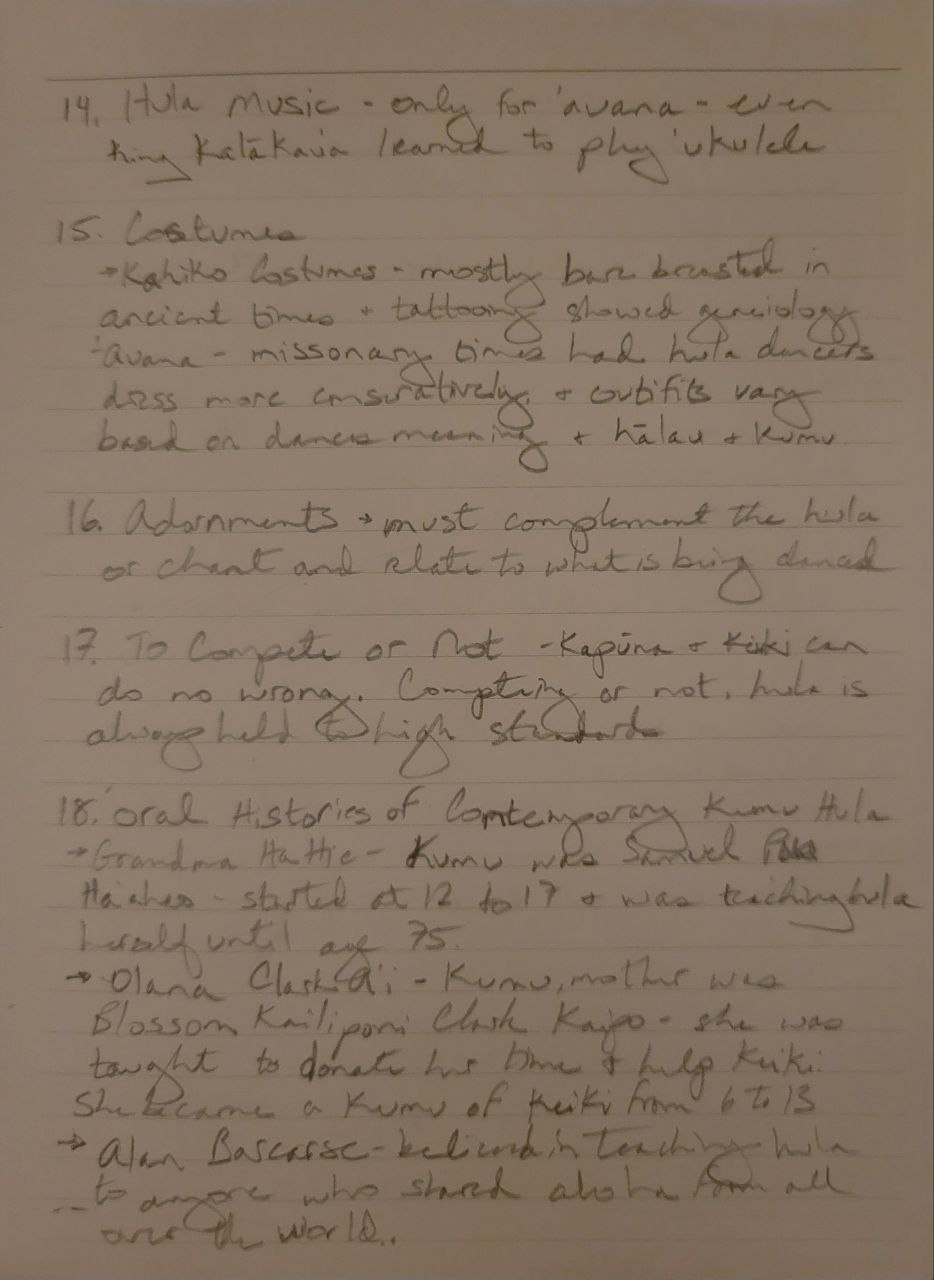 14. Hula Music - only for 'auana - even
King Kalākaua learned to play 'ukulele
15. Costumes
→ Kahiko Costumes - mostly bare breasted in
ancient times + tattooing showed geneiology
'auana - missonary times had hula dancers
dress more conseratively, + outifits vary
based on dances meaning + hālau + Kumu
16. Adornments → must complement the hula
or chant and relate to what is being danced
17. To Compete or Not - Kapūna + Keiki can
do no wrong. Competing or not, hula is
always held to high standards
18. Oral Histories of Contemporary Kumu Hula
→ Grandma Hattie - Kumu was Samuel
- started at 12 to 17 + was teaching hula
herself until age 75.
→ Olana Clark - Kumu, mother was
Blossom Kailiponi Clark Kaipo - she was
taught to donate her time + help Keiki.
She became a Kumu of Keiki from 6 to 13
→ Alan - believed in teaching hula
to anyone who shared aloha from all
over the world..